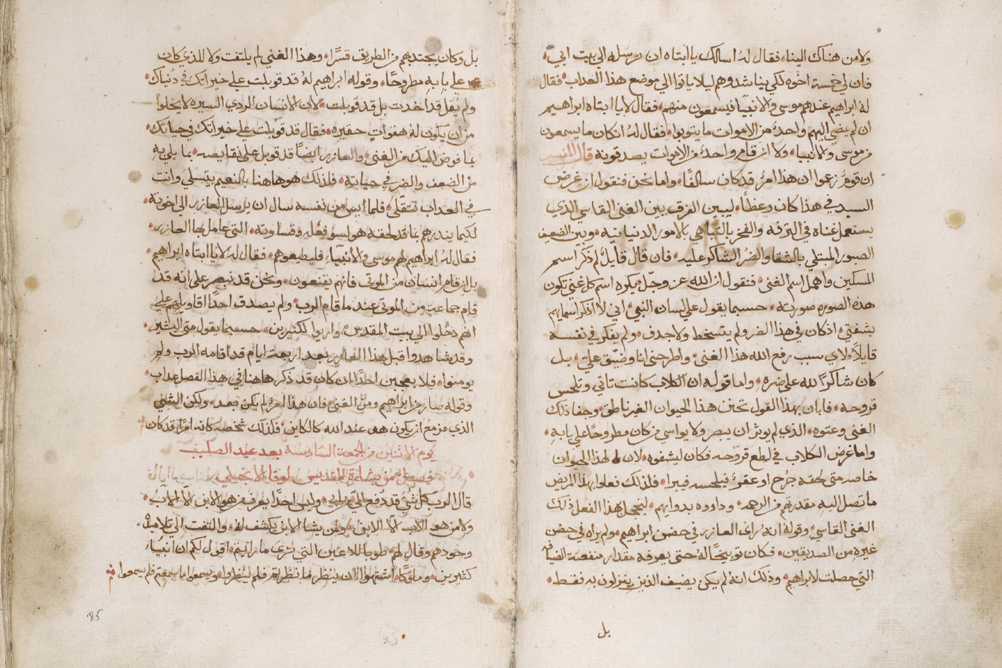 ولا من هناك الينا فقال له اسالك يا ابتاه ان ترسله الى بيت ابي
فان لي خمسة اخوة لكي يناشدهم ليلا ياتوا الى موضع هذا العداب فقال
له ابراهيم عندهم موسى والانبيا فيسمعون منهم فقال لا يا ابتاه ابراهيم
ان لم يمضي اليهم واحد من الاموات ما يتوبوا فقال له ان كان ما يسمعون
من موسى والانبيا ولا ان قام واحد من الاموات يصدقونه قال المفسر
ان قوم زعموا ان هذا المر قد كان سالفا واما نحن فنقول ان غرض
السيد في هذا كان وعظا ليبين الفرق بين الغني القاسي الذي
يستعمل غناه في الترفه والفخر بالامور الدنيانية وبين الضعيف
الصبور المبتلي بالشقا والضر الشاكر عليه فان قال قايل لم ذكر اسم
المسكين واهمل اسم الغني فنقول ان الله عز وجل يكره اسم كل غني تكون
هذه الصوره صورته حسبما يقول على لسان النبي اني لا اذكر اسماهم
بشفتي اذ كان في هذا الضر ولم يتسخط ولا جدف ولم يفكر في نفسه
قايلا لاي سبب رفع الله هذا الغني واطرحني انا وضيق علي بل
كان شاكرا لله على ضره واما قوله ان الكلاب كانت تاتي وتلحس
قروحه فابان بهذا القول تحنن هذا الحيوان الغير ناطق وجفا ذلك
الغني وعتوه الذي لم يوثر ان يبصر ولا يواسي من كان مطروحا على بابه
واما غرض الكلاب في لطع قروحه فكان ليشفوه لان هذا الحيوان
خاصة متى لحقه جرح او عقر فيلحسه فيبرا فلذلك فعلوا بهذا المريض
ما تصل اليه مقدرتهم من الرحمه وداووه بدوايهم ليخجل بهذا الفعل ذلك
الغني القاسي وقوله انه راى العازر في حضن ابراهيم ولم يراه في حضن
غيره من الصديقين فكان توبيخا له حتى يعرفه مقدار منفعة الضيافه
التي حصلت لابراهيم وذلك انه لم يكن يضيف الذين ينزلون به فقط
بل
بل وكان يجتذبهم من الطريق قسرا وهذا الغني لم يلتفت ولا للذي كان
على بابه مطروحا وقوله ابراهيم له قد قوبلت على خيراتك في دنياك
ولم يقل قد اخدت بل قد قوبلت لان الانسان الردي السيره لا يخلوا
من ان يكون له هفوات حقيره فقال قد قوبلت على خيراتك في حياتك
بما فوض اليك من الغنى والعازر ايضا قد قوبل على نقايصه بما بلي به
من الضعف والضر في حياته فلذلك هو هاهنا بالنعيم يتسلى وانت
في العداب تتقلى فلما ايس من نفسه سال ان يرسل العازر الى اخوته
لكيما ينذرهم بما قد لحقه هو لسو فعله وقساوته التي عامل بها العازر
فقال له ابراهيم لهم موسى والانبيا فليطيعوهم فقال له لا يا ابتاه ابراهيم
بل ان قام انسان من الموتى فانهم يقنعون ونحن قد نبصر على انه قد
قام جماعة من الموتى عند ما قام الرب ولم يصدق احدا اقاويلهم على
انهم دخلوا الى بيت المقدس وتراووا لكثيرين حسبما يقول متى البشير
وقد شاهدوا قبل هذا العازر بعد اربعة ايام قد اقامه الرب ولم
يومنوا فلا يعجبن احدا ان كان قد ذكر هاهنا في هذا الفصل عداب
وقوله صار من ابراهيم ومن الغني فان هذا المر لم يكن بعد ولكن الشي
الذي مزمع ان يكون هو عند الله كالكاين فلذلك شخصه كانه امرا قد كان
يوم الاثنين من الجمعة السادسة بعد عيد الصليب
فصل من بشارة القديس لوقا الانجيلي
قال الرب كل شي قد دفع الي من ابي وليس احدا يعرف من هو الابن الا الاب
ولا من هو الاب الا الابن ومن يشا الابن يكشف له والتفت الى تلاميذه
وحدهم وقال لهم طوبا للاعين التي ترى ما رايتم اقول لكم ان انبيا
كثيرين وملوكا اشتهوا ان ينظروا ما نظرتم فلم ينظروا ويسمعوا ما سمعتم فلم يسمعوا
85